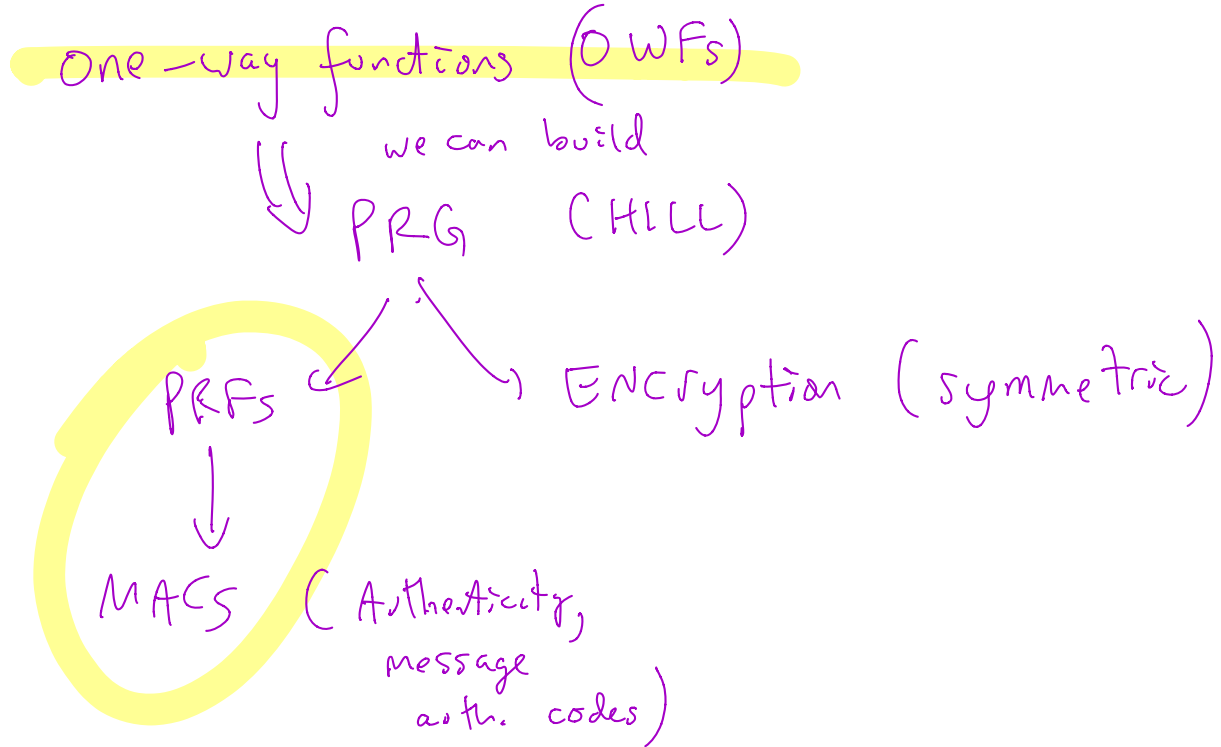 one-way functions (OWFs)
we can build
PRG (HILL)
PRFs ENCryption (symmetric)
MACS (Authenticity,
message
auth. codes)